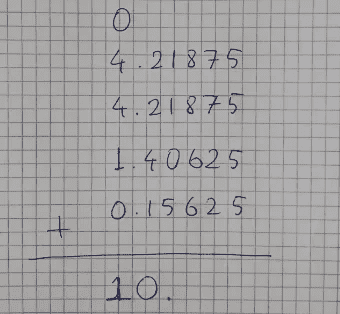 0
4.21875
4.21875
1.40625
0.15625
+
10.